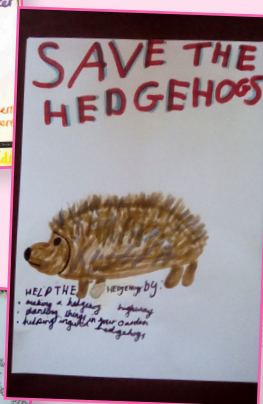 SAVE THE
HEDGEHOGS
HELP THE HEDGEHOGS by:
• making a hedgehog highway
• planting things in your Garden
• helping injured hedgehogs